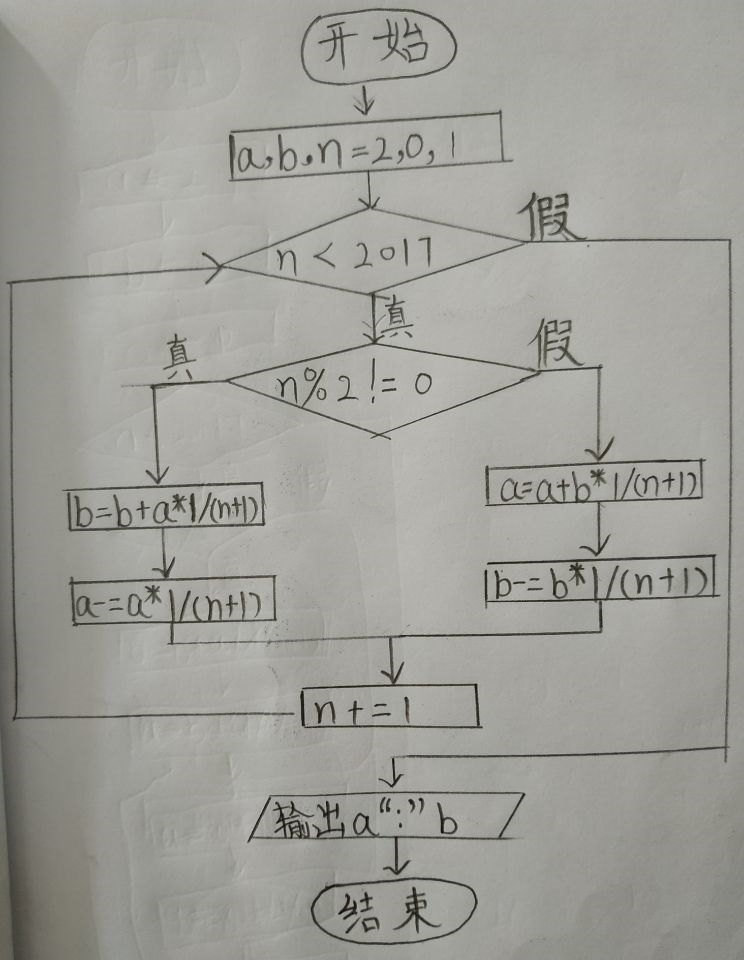 开始
a,b,n=2,0,1
假
n<2017
真
真
假
n%2!=0
b=b+a*1/(n+1)
a=a+b*1/(n+1)
a-=a*1/(n+1)
b-=b*1/(n+1)
n+=1
输出a“:”b
结束